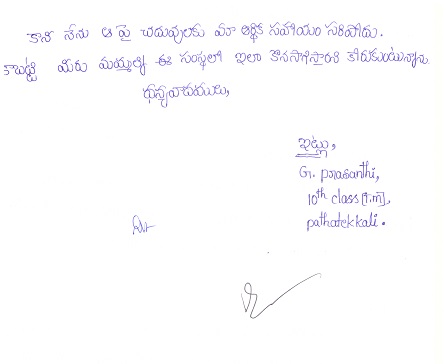 కాని నేను ఆ పై చదువులకు మా ఆర్థిక సహాయం సరిపోదు.
కాబట్టి మీరు మమ్మల్ని ఈ సంస్థలో ఇలా కొనసాగిస్తారని కోరుకుంటున్నాను
ధన్యవాదములు,
ఇట్లు,
G. prasanthi,
10th class [T.m],
pathatekkali.